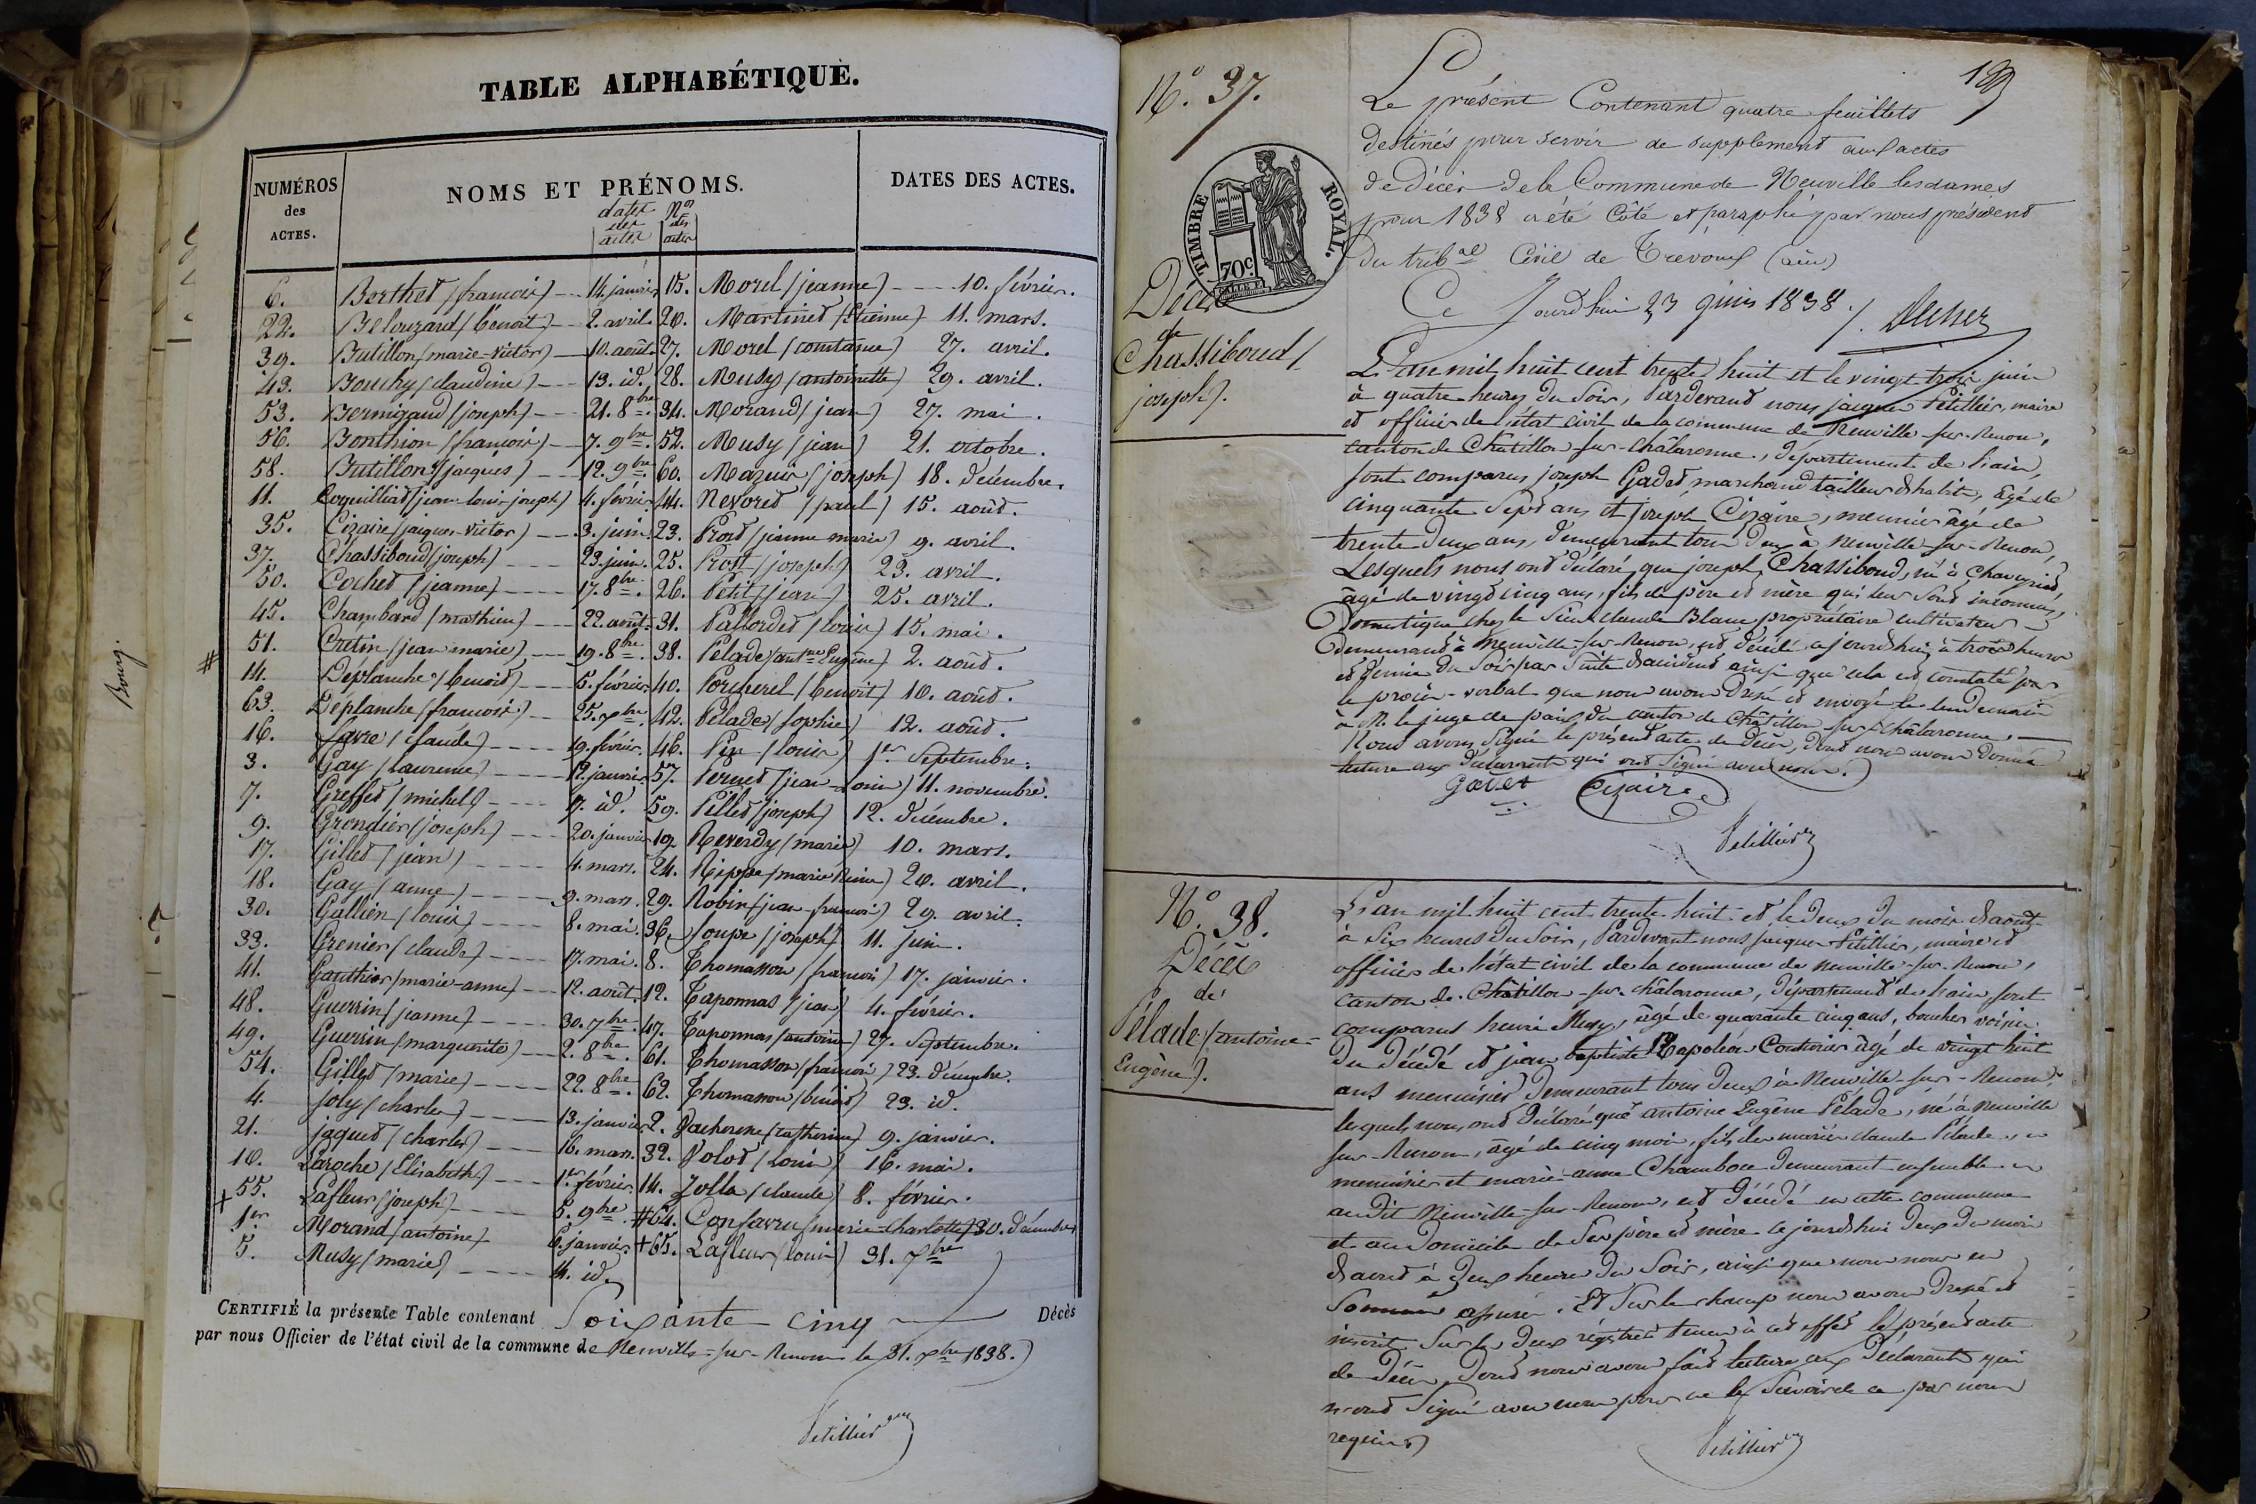 TABLE ALPHABÉTIQUE.
NUMÉROS des ACTES.
NOMS ET PRÉNOMS.
DATES DES ACTES.
dates des actes
Nos des actes
6. Berthet (françois) 14. janvier
22. Belouzard (benoit) 2. avril
39. Butillon (marie-victor) 10. août
43. Bouchy (claudine) 13. id.
53. Bernigaud (joseph) 21. 8bre
56. Bonthion (françois) 7. 9bre
58. Butillon (jacques) 12. 9bre
11. Coquilliat (jean-louis-joseph) 4. février
35. Cizaire (jacques-victor) 3. juin
37. Chassiboud (joseph) 23. juin
50. Cochet (jeanne) 17. 8bre
45. Chambard (mathieu) 22. août
51. Cretin (jean marie) 19. 8bre
14. Déplanche (benoit) 5. février
63. Déplanche (françois) 25. xbre
16. favre (claude) 19. février
3. Gay (laurence) 12. janvier
7. Greffet (michel) 17. id.
9. Grondier (joseph) 20. janvier
17. Gillet (jean) 4. mars
18. Gay (anne) 9. mars
30. Gallien (louis) 8. mai
33. Grenier (claude) 17. mai
41. Gauthier (marie-anne) 12. août
48. Guerrin (jeanne) 30. 7bre
49. Guerrin (marguerite) 2. 8bre
54. Gillet (marie) 22. 8bre
4. joly (charles) 13. janvier
21. jaquet (charles) 16. mars
10. Laroche (Elisabeth) 1er février
+ 55. Lafleur (joseph) 5. 9bre
1er Morand (antoine) 6. janvier
5. Musy (marie) 14. id.
15. Morel (jeanne) 10. février.
20. Martinet (Etienne) 11. mars.
27. Morel (constance) 27. avril.
28. Musy (antoinette) 29. avril.
34. Morand (jean) 27. mai.
52. Musy (jean) 21. octobre.
60. Mazuir (joseph) 18. décembre.
44. Nevoret (paul) 15. août.
23. Prost (jeanne marie) 9. avril.
25. Prost (joseph) 23. avril.
26. Petit (jean) 25. avril.
31. Pallordet (louis) 15. mai.
38. Pelade (antne Eugène) 2. août.
40. Porcherel (benoit) 10. août.
42. Pelade (sophie) 12. août.
46. Pin (louis) 1er Septembre.
57. Pernet (jean-Louis) 11. novembre.
59. Pillet (joseph) 12. décembre.
19. Reverdy (marie) 10. mars.
24. Rippe (marie Reine) 20. avril.
29. Robin (jean-françois) 29. avril.
36. Soupe (joseph) 11. juin.
8. Thomasson (françois) 17. janvier.
12. Taponnas (jean) 4. février.
47. Taponnas (antoine) 27. Septembre.
61. Thomasson (françois) 23. décembre.
62. Thomasson (benoit) 23. id.
2. Vacheresse (catherine) 9. janvier.
32. Volot (Louis) 16. mai.
14. Jolla (claude) 8. février.
#64. Confavreu (marie-charlotte) 30. décembre
+65. Lafleur (louis) 31. xbre
CERTIFIÉ la présente Table contenant Soixante cinq Décès
par nous Officier de l'état civil de la commune de Neuville-sur-Renom le 31. xbre 1838.
Petillier
Bourg.
N° 37.
TIMBRE ROYAL.
70c
Décès
de
Chassiboud
joseph.
Le présent Contenant quatre feuillets
destinés pour servir de supplement aux actes
de Décès de la Commune de Neuville les dames
pour 1838 a été Côté et paraphé par nous président
du tribal Civil de Trevoux (ain)
Ce Jourd'hui 23 juin 1838
L'an mil huit cent trente huit et le vingt-trois juin
à quatre heures du Soir, Pardevant nous jacques Petillier, maire
et officier de l'état civil de la commune de Neuville-sur-Renom,
canton de Châtillon-sur-Châlaronne, département de l'ain,
sont comparus joseph Gadet marchand tailleur d'habits, âgé de
cinquante Sept ans et joseph Cizaire, meunier âgé de
trente deux ans, demeurant tous deux à Neuville-sur-Renom,
Lesquels nous ont déclaré que joseph Chassiboud, né à Chaveyriat
âgé de vingt cinq ans, fils de père et mère qui leur sont inconnus,
Domestique chez le Sieur claude Blanc propriétaire cultivateur
demeurant à Neuville-sur-Renom, est décédé ajourd'hui à trois heures
et demie du Soir par Suite d'accident ainsi que cela est constaté par
le procès-verbal que nous avons Dressé et envoyé le lendemain
à M. le juge de paix du canton de Châtillon-sur-Châlaronne.
Nous avons signé le présent acte de décès, dont nous avons donné
lecture aux déclarants qui ont Signé avec nous.
Gadet Cizaire
Petillier
N° 38.
Décès
de
Pelade (antoine-
Eugène).
L'an mil huit cent trente-huit et le deux du mois d'août
à Six heures du Soir, Pardevant nous jacques Petillier, maire et
officier de l'état civil de la commune de Neuville-sur-Renom,
canton de Châtillon-sur-châlaronne, département de l'ain, sont
comparus henri Musy, âgé de quarante cinq ans, boucher voisin
du décédé et jean baptiste Napoléon Couturier âgé de vingt huit
ans menuisier demeurant tous deux à Neuville-sur-Renom,
lesquels nous ont déclaré que antoine Eugène Pelade, né à Neuville
sur-Renom, âgé de cinq mois, fils de mariés claude Pelade,
menuisier et marie-anne Chamboce demeurant ensemble
au dit Neuville-sur-Renom, est décédé en cette commune
et au Domicile de Ses père et mère ce jourd'hui deux du mois
d'août à deux heures du Soir, ainsi que nous nous en
Sommes assuré. Et Sur le champ nous avons Dressé et
inscrit Sur les deux régistres tenus à cet effet le présent acte
de Décès, dont nous avons fait lecture aux Déclarants qui
n'ont Signé avec nous pour ne le Savoir de ce par nous
requis
Petillier